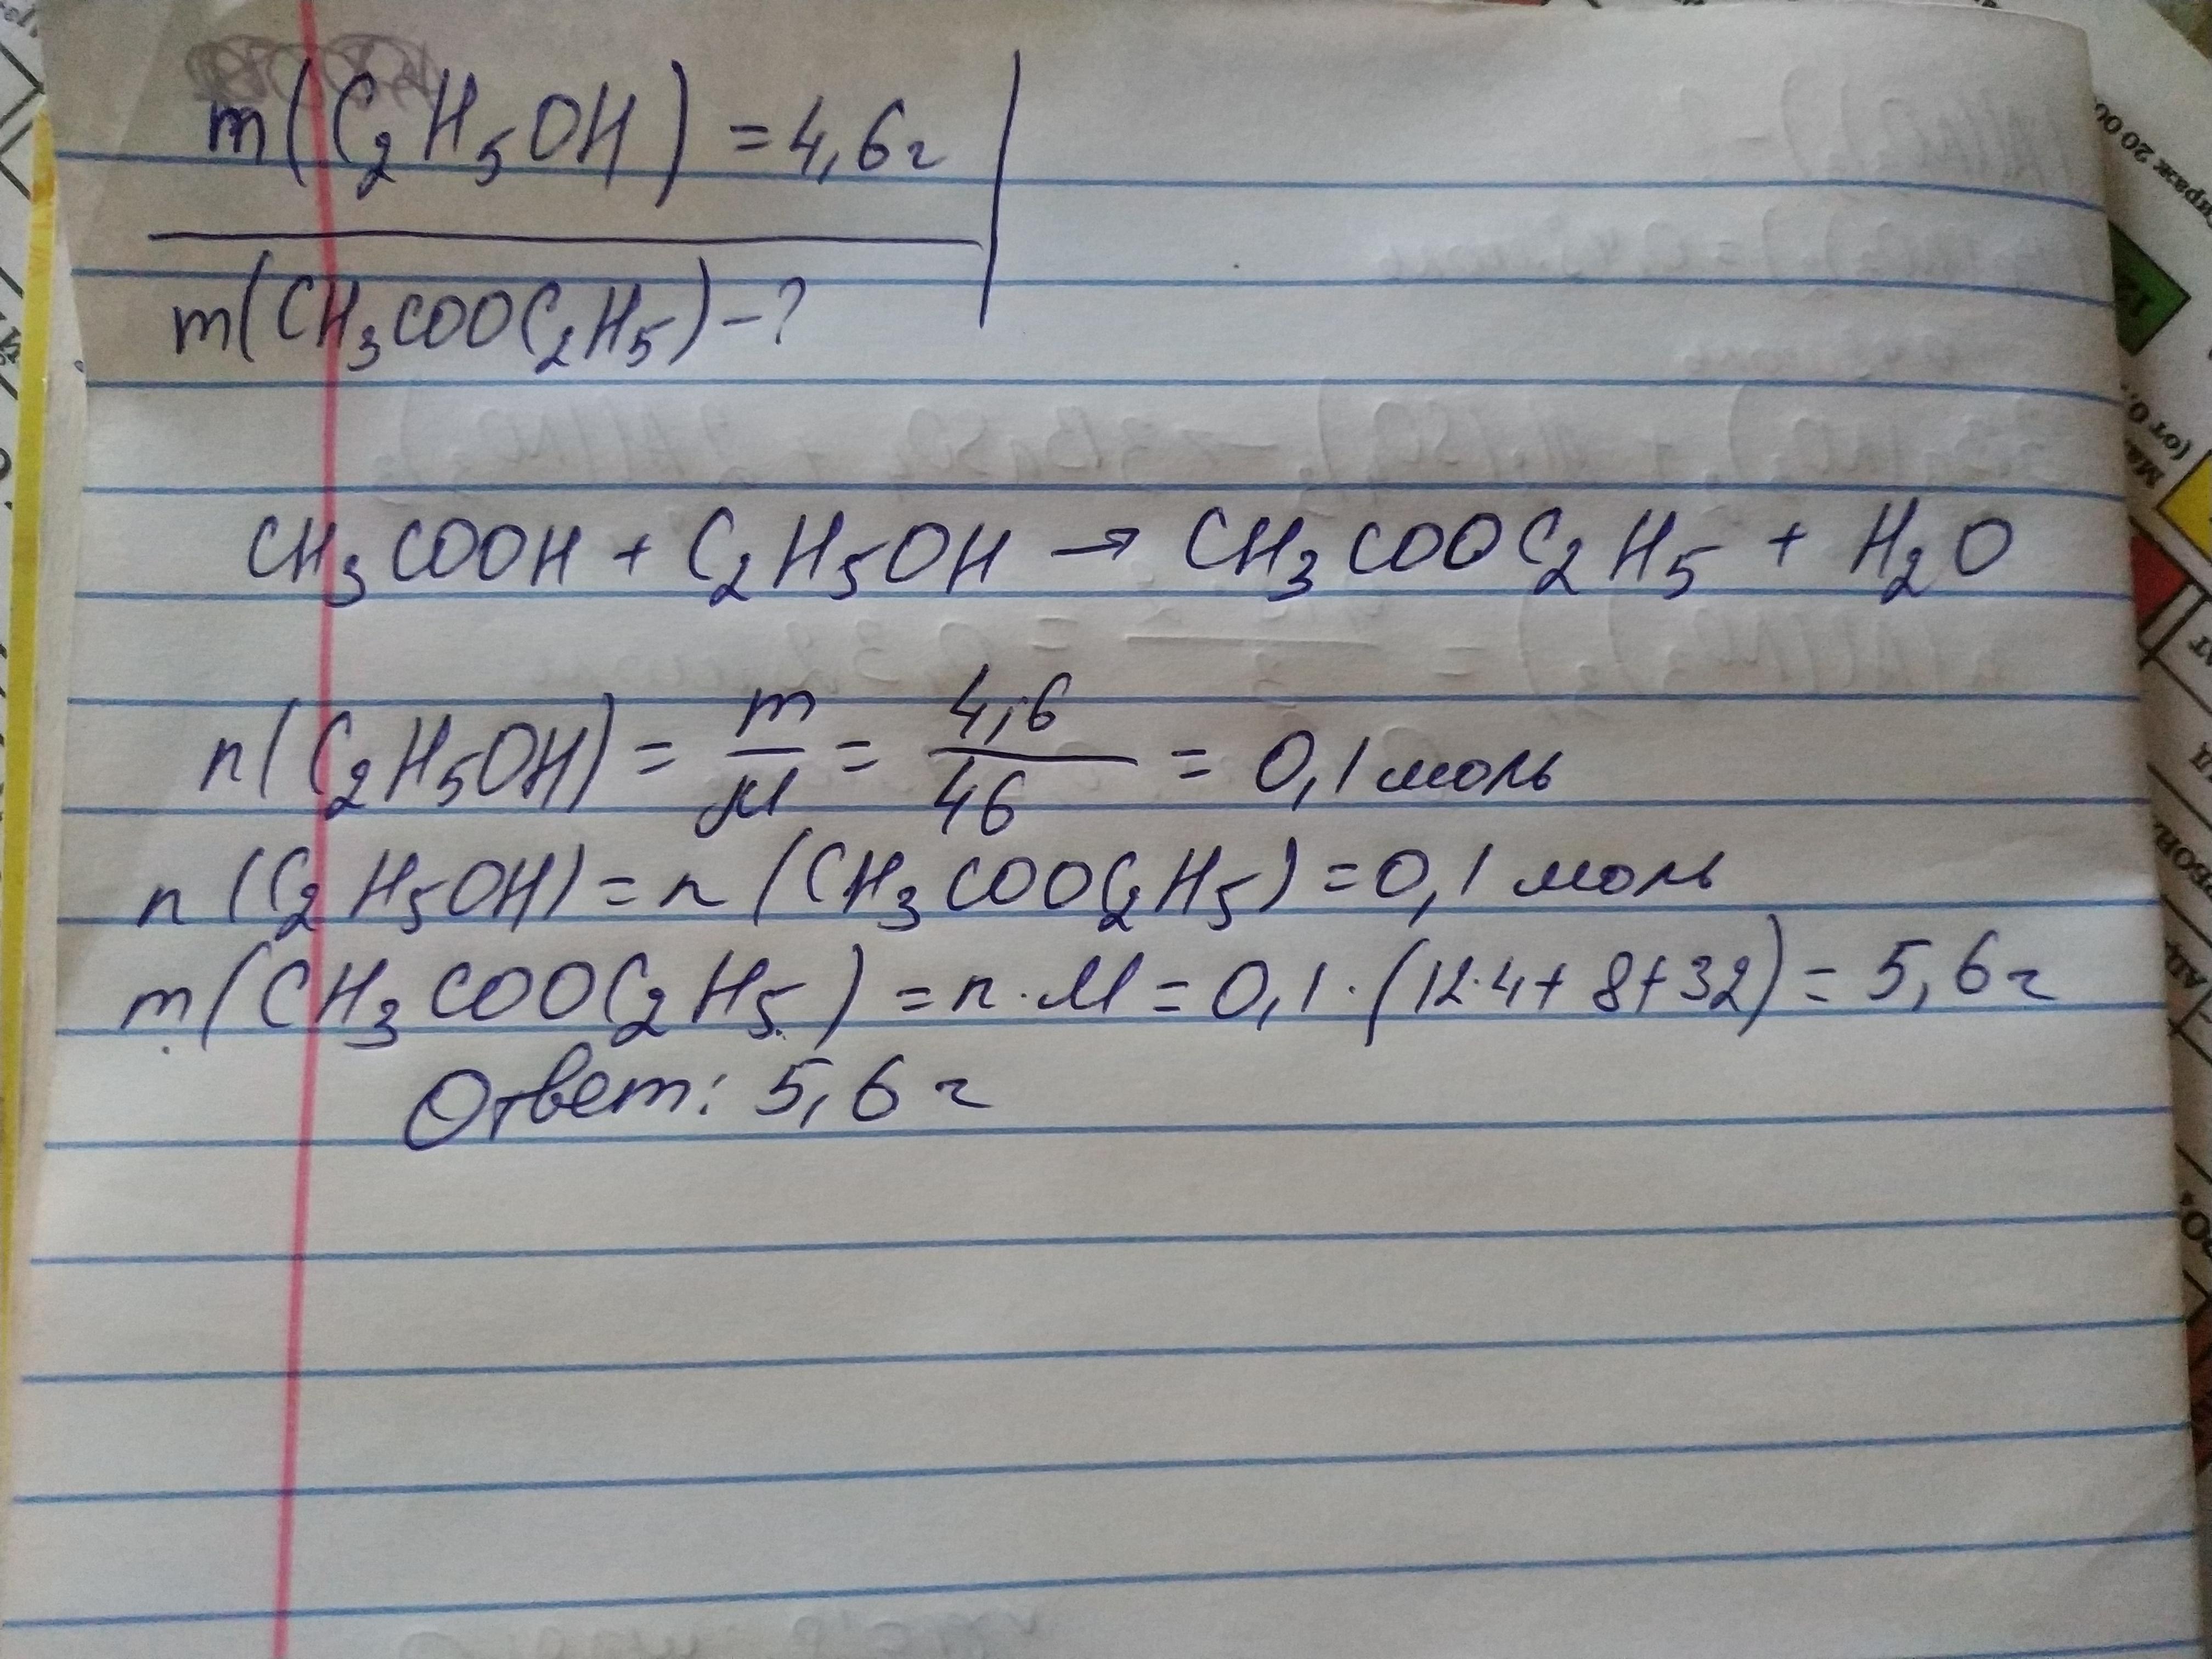 m(C₂H₅OH) = 4,6г
m(CH₃COOC₂H₅) – ?
CH₃COOH + C₂H₅OH → CH₃COOC₂H₅ + H₂O
n(C₂H₅OH) = m/M = 4,6/46 = 0,1 моль
n(C₂H₅OH) = n(CH₃COOC₂H₅) = 0,1 моль
m(CH₃COOC₂H₅) = n·M = 0,1·(12·4+8+32) = 5,6г
Ответ: 5,6 г
12